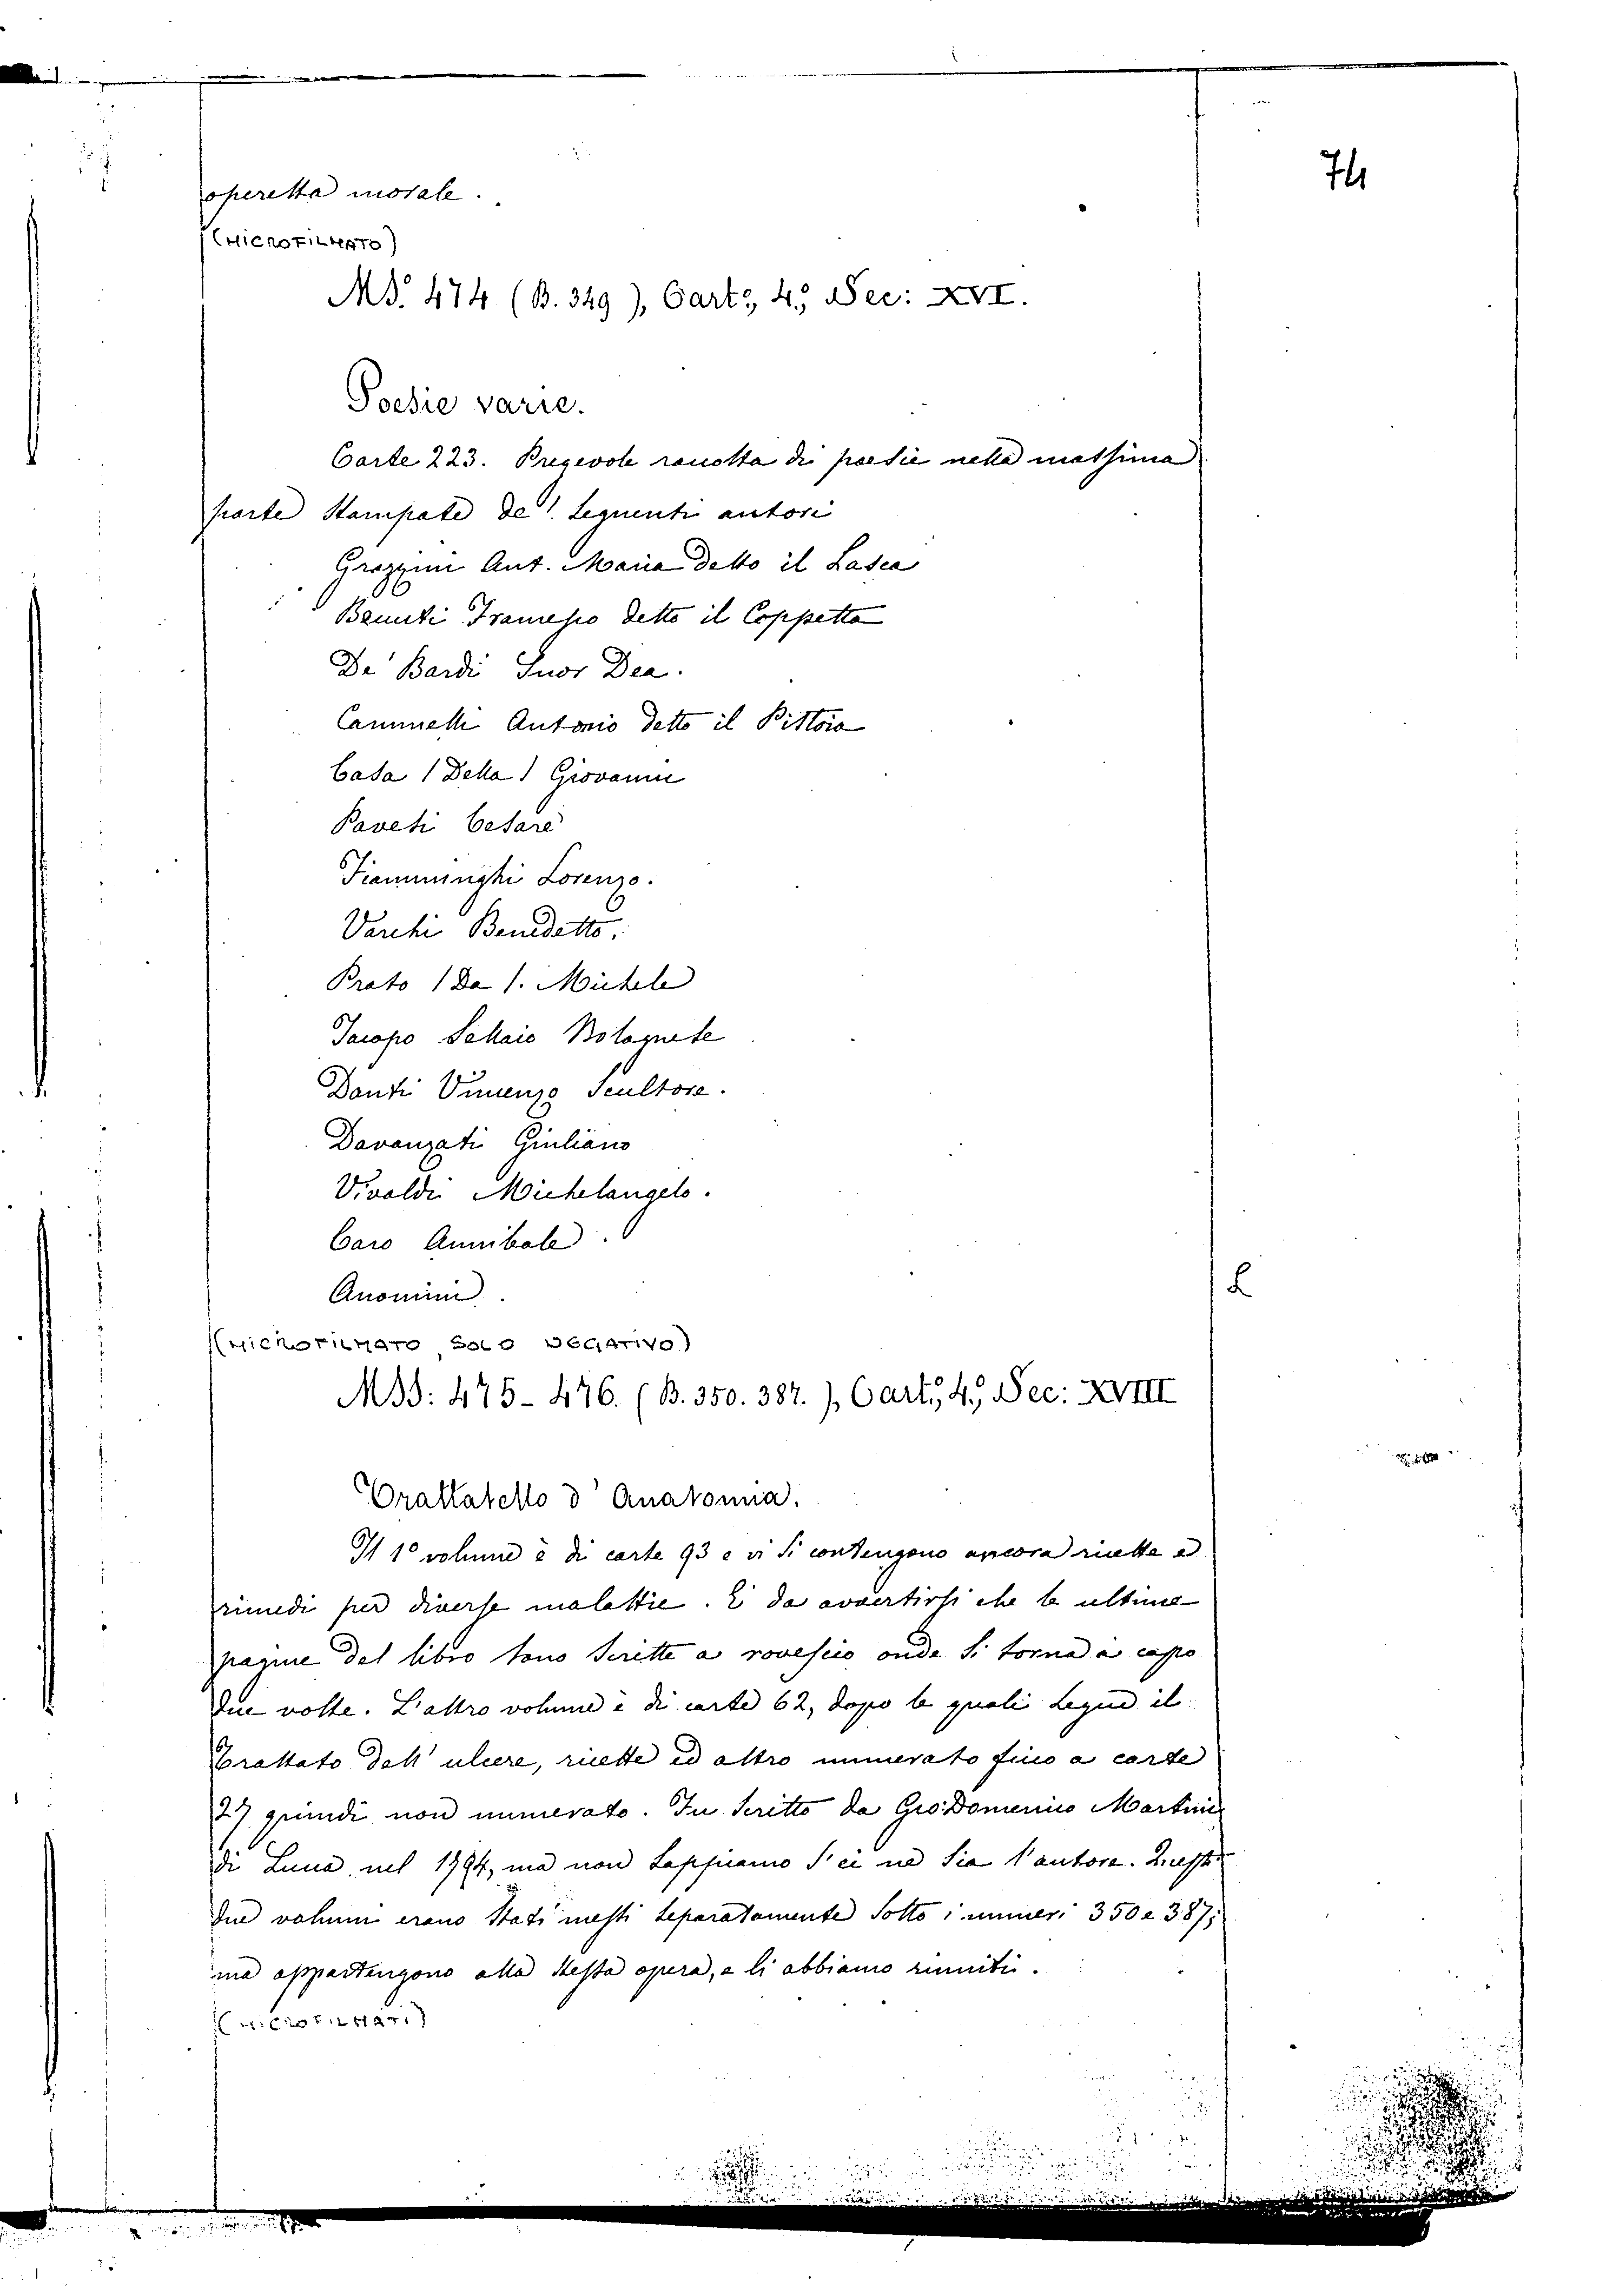 74
operetta morale.
(MICROFILMATO)
MS. 474 (B. 349), Cart:, 4.º, Sec: XVI.
Poesie varie.
Carte 223. Pregevole raccolta di poesie nella massima
parte stampate de'. seguenti autori
Grazzini Ant. Maria detto il Lasca
Beccuti Francesco detto il Coppetta
De' Bardi Suor Dea.
Cammelli Antonio detto il Pistoia
Casa (Della) Giovanni
Paveti Cesare
Fiamminghi Lorenzo.
Varchi Benedetto.
Prato (Da). Michele
Jacopo Sellaio Bolognese
Danti Vincenzo Scultore.
Davanzati Giuliano
Vivaldi Michelangelo.
Caro Annibale.
Anonimi.
(MICROFILMATO, SOLO NEGATIVO)
MSS: 475-476. (B. 350. 387.), Cart:, 4.º, Sec: XVIII
Trattatello d'Anatomia.
Il 1º volume è di carte 93 e vi si contengono ancora ricette e
rimedi per diverse malattie. È da avvertirsi che le ultime
pagine del libro sono scritte a rovescio onde si torna a capo
due volte. L'altro volume è di carte 62, dopo le quali segue il
Trattato dell'ulcere, ricette ed altro numerato fino a carte
27 quindi non numerato. Fu scritto da Gio: Domenico Martini
di Luna nel 1794, ma non sappiamo s'ei ne sia l'autore. Questi
due volumi erano stati messi separatamente sotto i numeri 350 e 387;
ma appartengono alla stessa opera, e li abbiamo riuniti.
(MICROFILMATI)